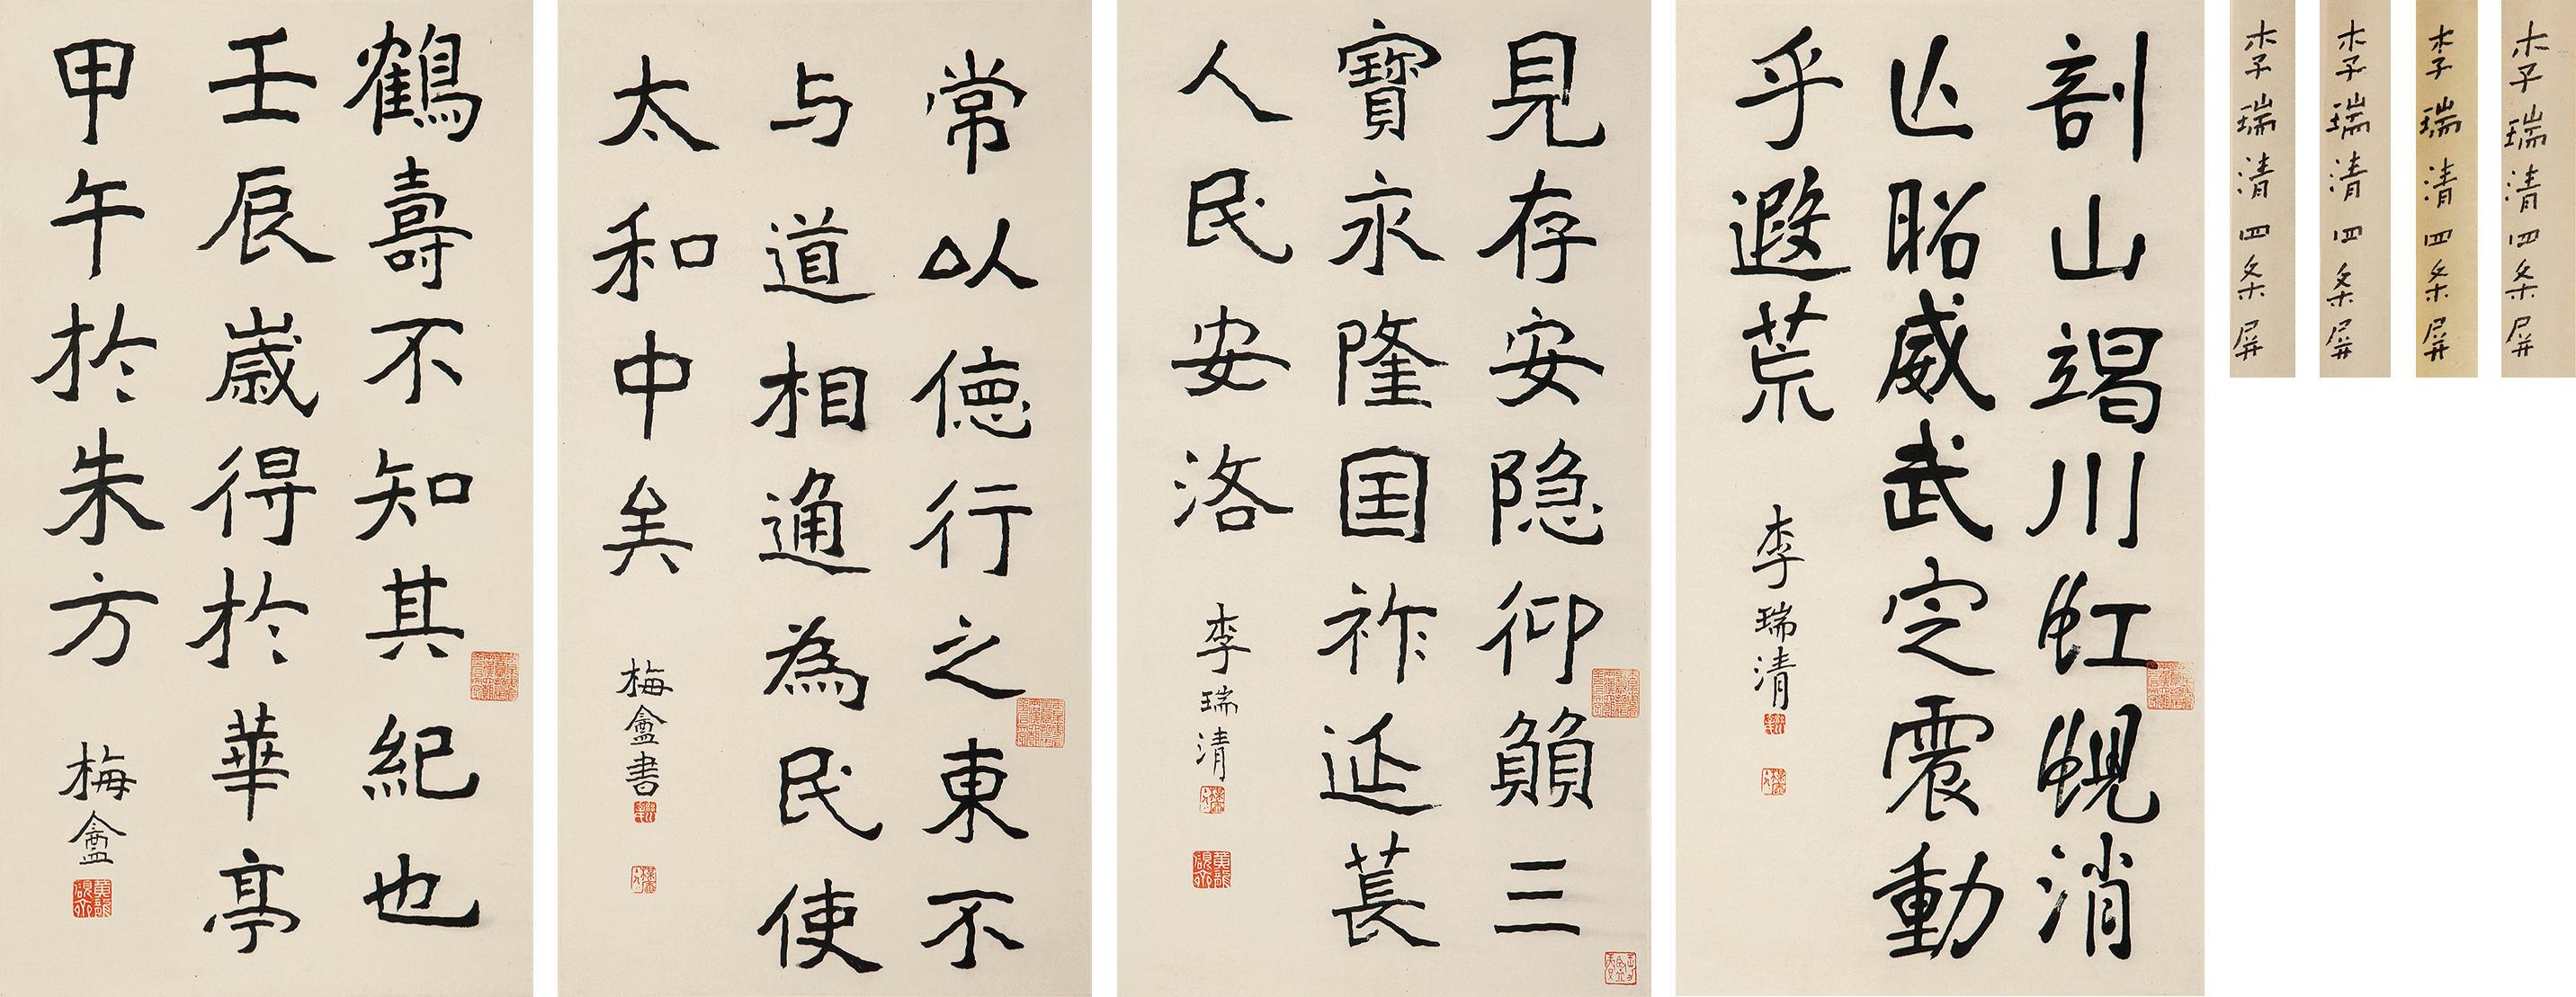 李瑞清四条屏
李瑞清四条屏
李瑞清四条屏
李瑞清四条屏
剖山竭川虹蜺消
亾昭威武定震動
乎遐荒
李瑞清
見存安隐仰願三
寶永隆囯祚延萇
人民安洛
李瑞清
常以德行之東不
与道相通為民使
太和中矣
梅盦書
鶴壽不知其紀也
壬辰歲得於華亭
甲午於朱方
梅盦